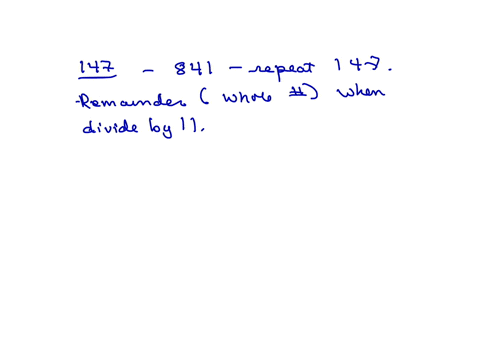 147 - 841 - repeat 147.
-Remainder ( whole #) when
divide by 11.